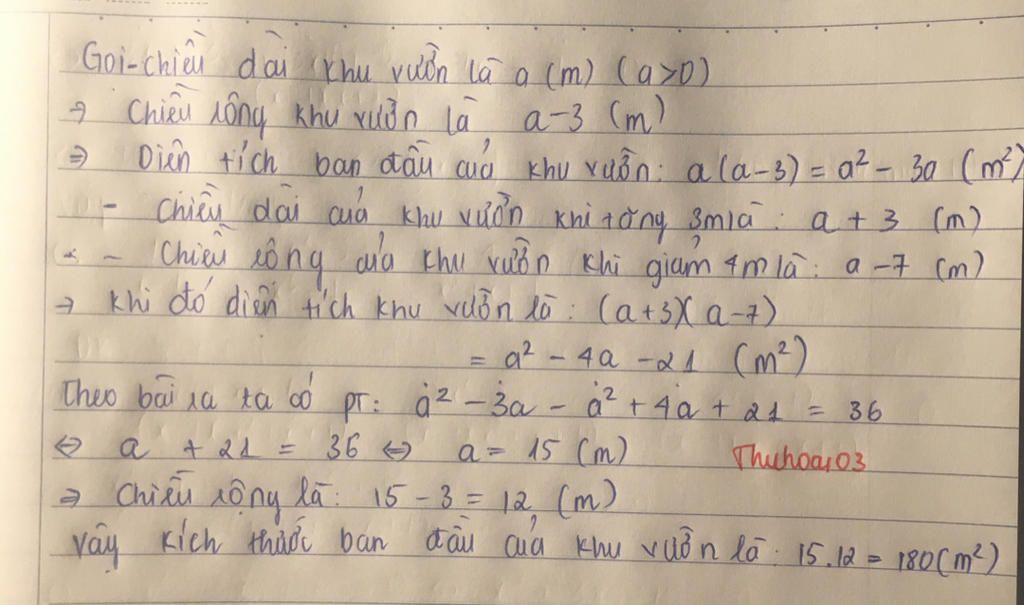 Gọi chiều dài khu vườn là a (m) (a>0)
⇒ Chiều rộng khu vườn là a-3 (m)
⇒ Diện tích ban đầu của khu vườn: a(a-3) = a² - 3a (m²)
- Chiều dài của khu vườn khi tăng 3m là: a + 3 (m)
- Chiều rộng của khu vườn khi giảm 4m là: a -7 (m)
→ Khi đó diện tích khu vườn là: (a+3)(a-7)
= a² - 4a - 21 (m²)
Theo bài ra ta có pt: a² - 3a - a² + 4a + 21 = 36
⇔ a + 21 = 36 ⇔ a = 15 (m)
Thuhoa103
⇒ Chiều rộng là: 15 - 3 = 12 (m)
Vậy kích thước ban đầu của khu vườn là: 15.12 = 180 (m²)